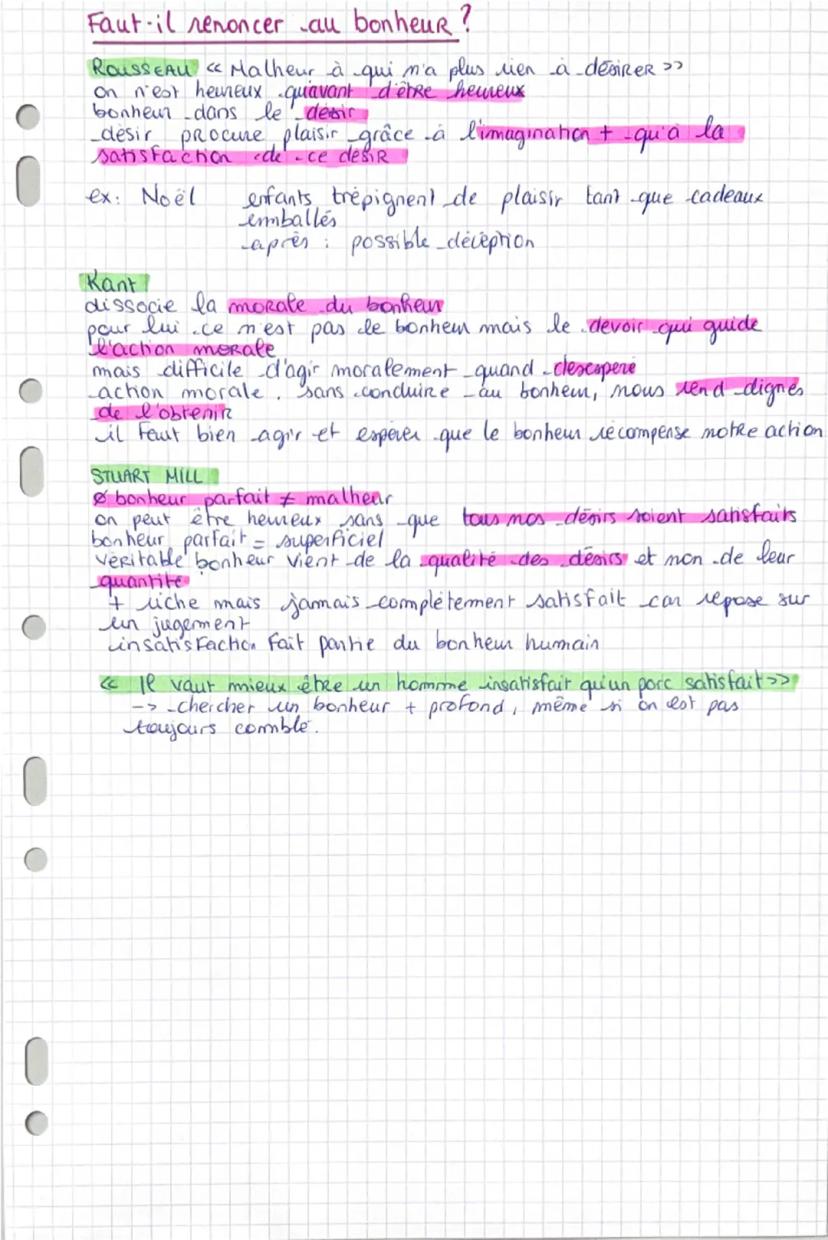 Faut-il renoncer au bonheur ?
ROUSSEAU << Malheur à qui n'a plus rien à désirer >>
on n'est heureux qu'avant d'être heureux
bonheur dans le désir
désir procure plaisir grâce à l'imagination + qu'à la
satisfaction de ce désir
ex : Noël enfants trépignent de plaisir tant que cadeaux
emballés
après : possible déception
Kant
dissocie la morale du bonheur
pour lui ce n'est pas le bonheur mais le devoir qui guide
l'action morale
mais difficile d'agir moralement quand desespéré
action morale, sans conduire au bonheur, nous rend dignes
de l'obtenir
il faut bien agir et espérer que le bonheur récompense notre action
STUART MILL
Ø bonheur parfait ≠ malheur
on peut être heureux sans que tous nos désirs soient satisfaits
bonheur parfait = superficiel
véritable bonheur vient de la qualité des désirs et non de leur
quantité
+ riche mais jamais complètement satisfait car repose sur
un jugement
insatisfaction fait partie du bonheur humain
<< Il vaut mieux être un homme insatisfait qu'un porc satisfait >>
-> chercher un bonheur + profond, même si on est pas
toujours comblé.